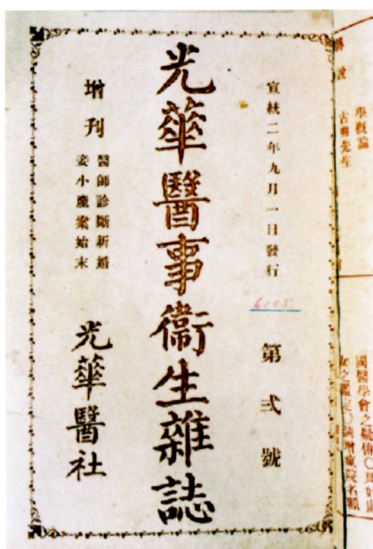 宣統二年九月一日發行
6105
第弍號
光華醫事衞生雜誌
增刊
醫師診斷新婚
妾小鳳案始末
光華醫社
學概論